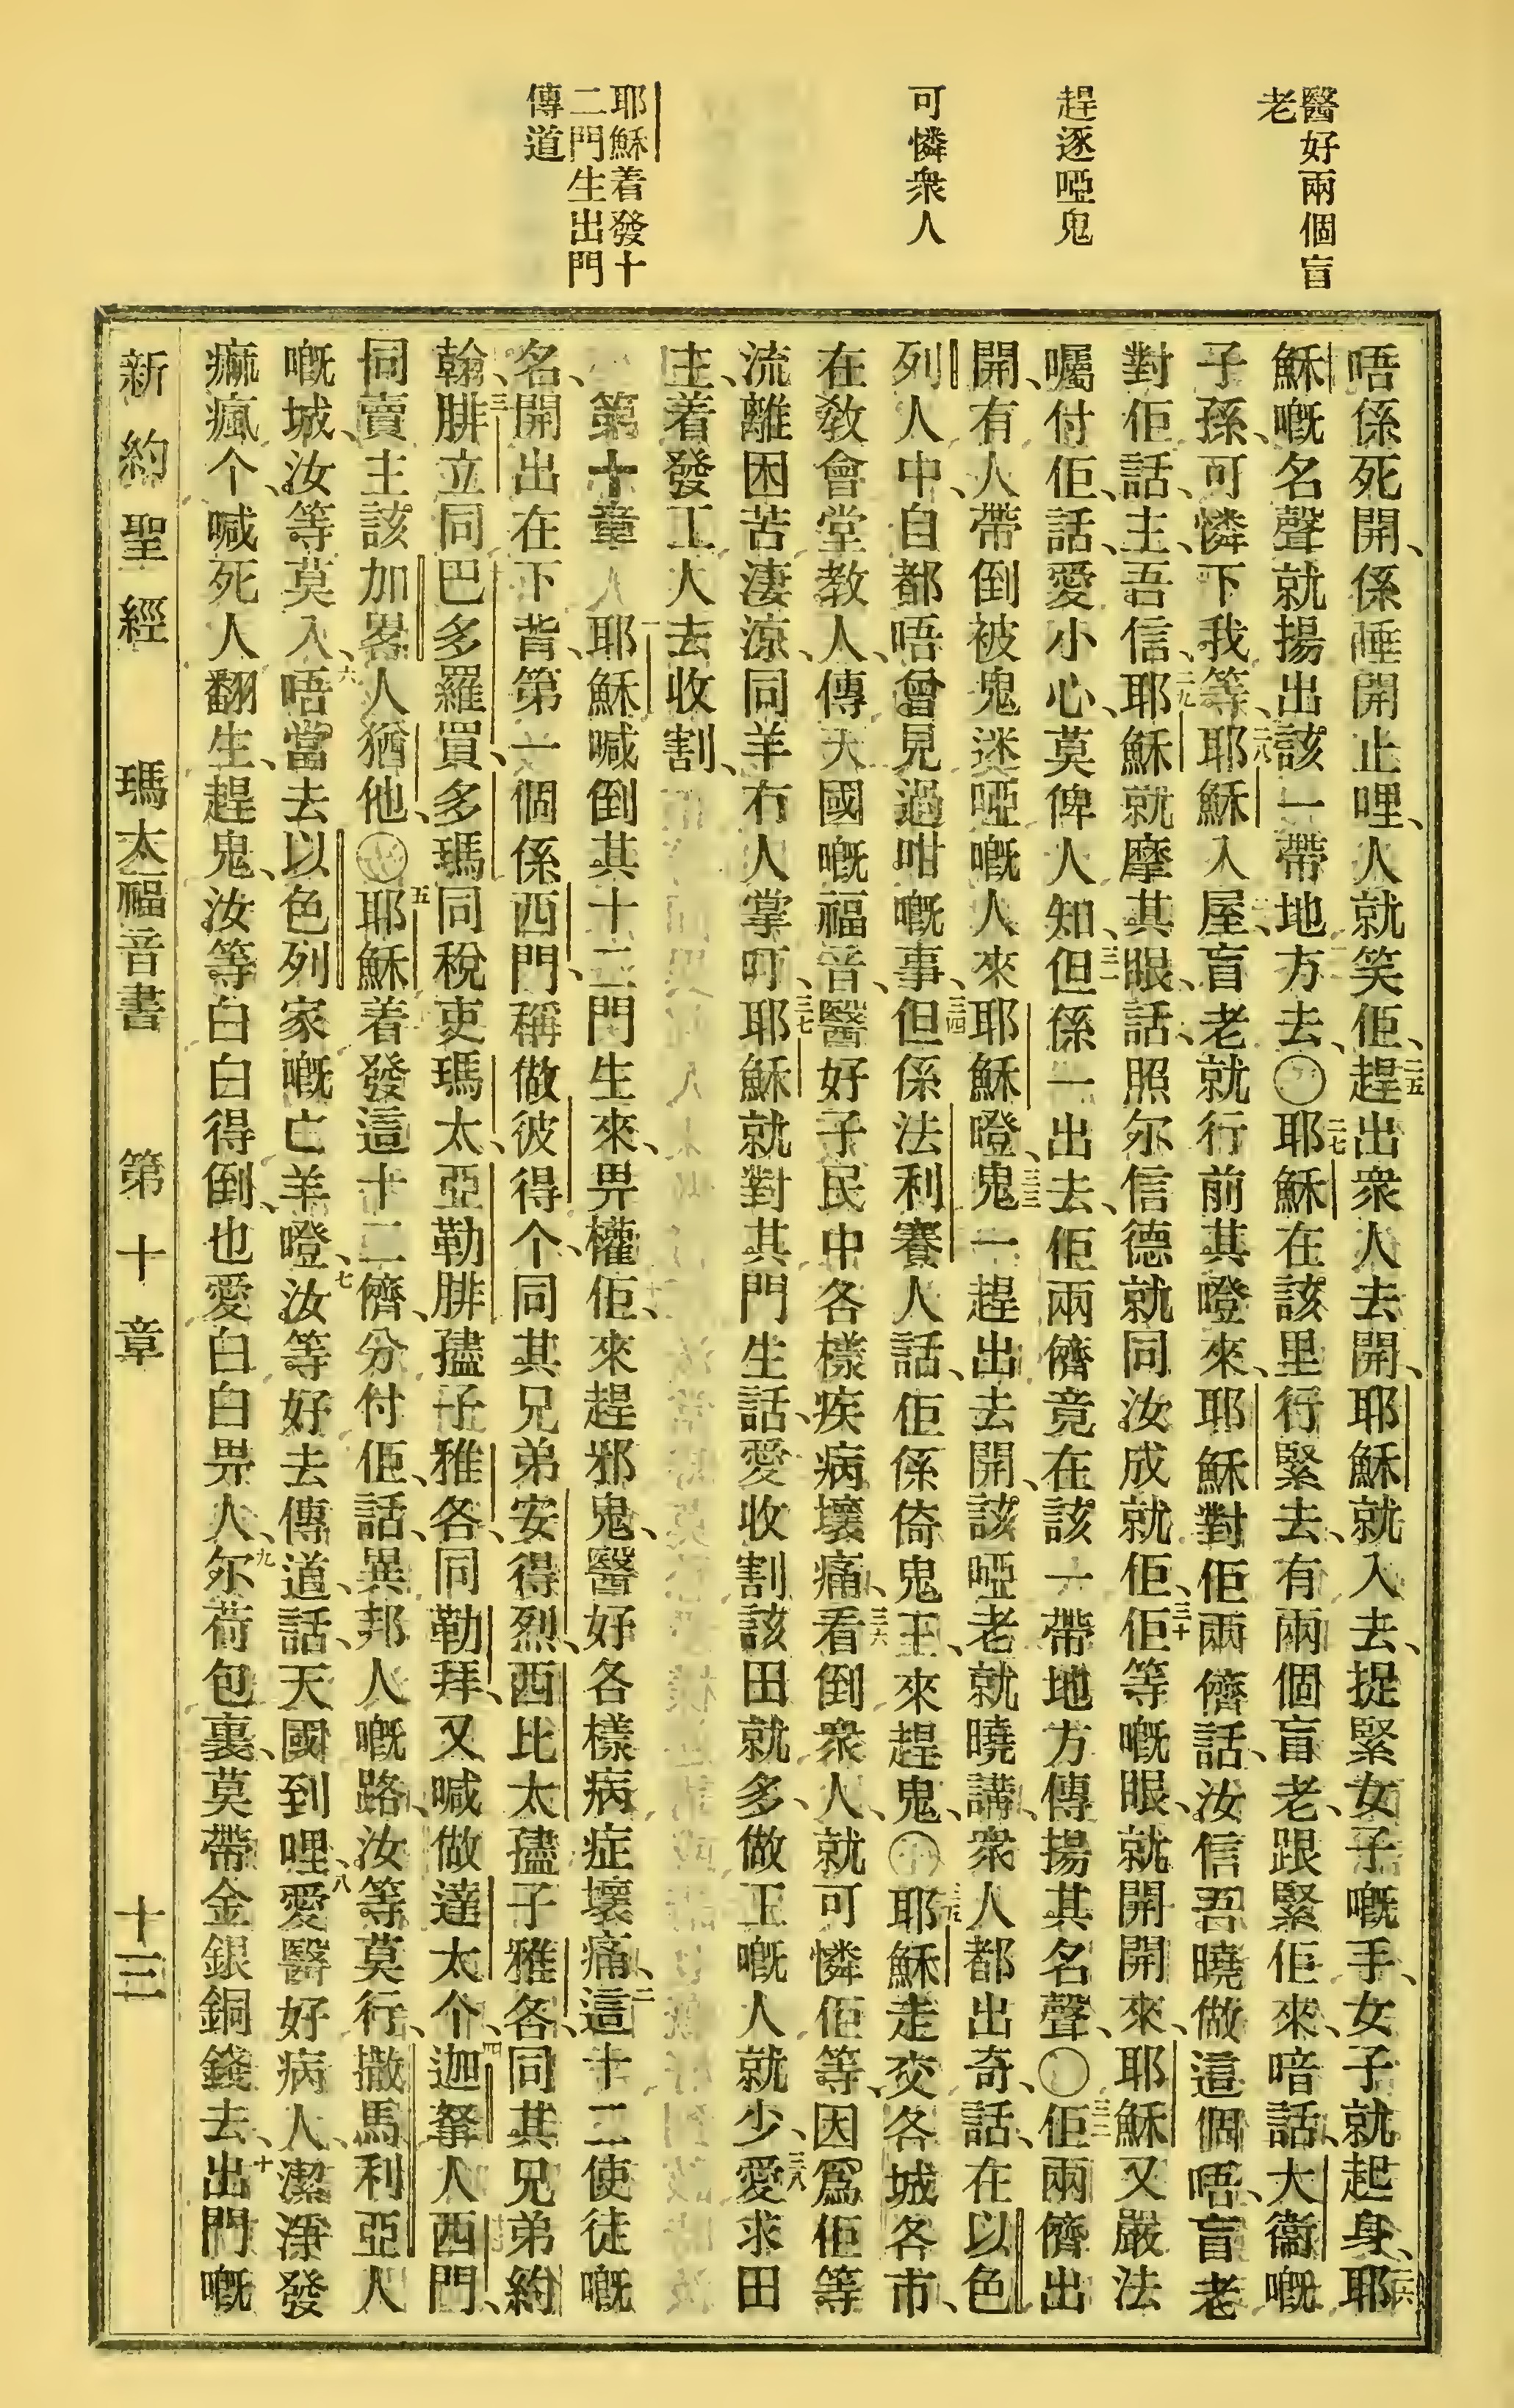 醫好兩個盲
老
趕逐啞鬼
可憐衆人
耶穌着發十
二門生出門
傳道
唔係死開、係睡開止哩、人就笑佢、二五趕出衆人去開、耶穌就入去、捉緊女子嘅手、女子就起身、二六耶
穌嘅名聲就揚出該一帶地方去、〇二七耶穌在該里行緊去、有兩個盲老、跟緊佢來、喑話、大衞嘅
子孫、可憐下我等、二八耶穌入屋、盲老就行前其嶝來、耶穌對佢兩儕話、汝信吾曉做這個唔、盲老
對佢話、主、吾信、二九耶穌就摩其眼、話、照尔信德就同汝成就佢、三十佢等嘅眼、就開開來、耶穌又嚴法
囑付佢、話、愛小心、莫俾人知、三一但係一出去、佢兩儕竟在該一帶地方傳揚其名聲、〇三二佢兩儕出
開、有人帶倒被鬼迷啞嘅人來耶穌嶝、三三鬼一趕出去開、該啞老就曉講、衆人都出奇、話、在以色
列人中、自都唔曾見過咁嘅事、三四但係法利賽人話、佢係倚鬼王、來趕鬼、〇三五耶穌走交各城各市、
在敎會堂教人、傳天國嘅福音、醫好子民中各樣疾病壞痛、三六看倒衆人、就可憐佢等、因爲佢等
流離困苦淒涼、同羊冇人掌吓、三七耶穌就對其門生話、愛收割該田就多、做工嘅人就少、三八愛求田
主、着發工人去收割、
第十章 一耶穌喊倒其十二門生來、畀權佢、來趕邪鬼、醫好各樣病症壞痛、二這十二使徒嘅
名、開出在下背、第一個係西門、稱做彼得个、同其兄弟安得烈、西比太孻子雅各、同其兄弟約
翰、三腓立同巴多羅買、多瑪同稅吏瑪太、亞勒腓孻子雅各、同勒拜、又喊做達太个、四迦拏人西門、
同賣主該加畧人猶他、〇五耶穌着發這十二儕、分付佢、話、異邦人嘅路、汝等莫行、撒馬利亞人
嘅城、汝等莫入、六唔當去以色列家嘅亡羊嶝、七汝等好去傳道、話、天國到哩、八愛醫好病人、潔淨發
痲瘋个、喊死人翻生、趕鬼、汝等白白得倒、也愛白白畀人、九尔荷包裏、莫帶金銀銅錢去、十出門嘅
新約聖經 瑪太福音書 第十章 十三